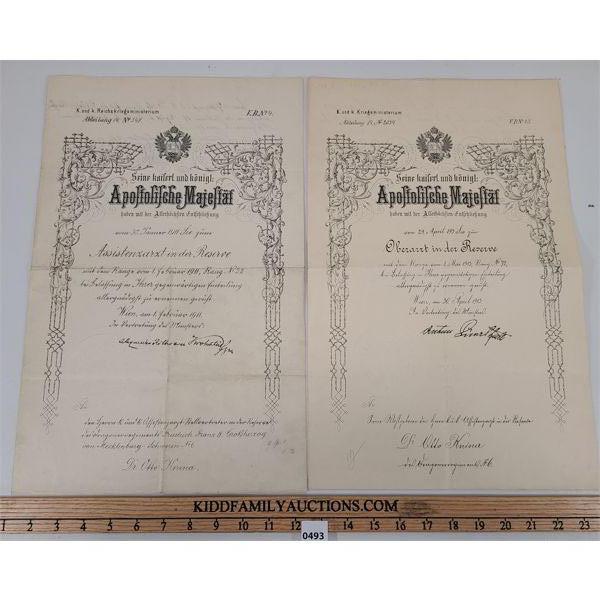 K. und k. Reichskriegsministerium
Abteilung 14, Nº 348 E.B.Nº 9.
Seine kaiserl. und königl:
Apostolische Majestät
haben mit der Allerhöchsten Entschließung
vom 30. Jänner 1911 Sie zum
Assistenzarzt in der Reserve
mit dem Range vom 1. Februar 1911, Rang Nº 22
bei Belassung in Ihrer gegenwärtigen Einteilung
allergnädigst zu ernennen geruht.
Wien, am 1. Februar 1911.
In Vertretung des Ministers:
An
den Herrn k. und k. Assistenzarzt-Stellvertreter in der Reserve
des Dragonerregiments Friedrich Franz IV. Großherzog
von Mecklenburg-Schwerin Nº 6
Dr. Otto Knina.
K. und k. Kriegsministerium
Abteilung 14, Nº
Seine kaiserl. und königl:
Apostolische Majestät
haben mit der Allerhöchsten Entschließung
vom 29. April 1913 Sie zum
Oberarzt in der Reserve
mit dem Range vom 1. Mai 1913, Rang Nº
bei Belassung in Ihrer gegenwärtigen Einteilung
allergnädigst zu ernennen geruht.
Wien, am 30. April 1913
In Vertretung des Ministers:
An
k. u. k. Assistenzarzt in der Reserve
Dr. Otto Knina
des Dragonerregiments Nº 6.
KIDDFAMILYAUCTIONS.COM
1 2 3 4 5 6 7 8 9 10 11 12 14 15 16 17 18 19 20 21 22 23
0493